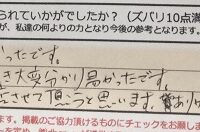 られていかがでしたか？（ズバリ10点満
が、私達の何よりの力となり今後の参考となります。
ったです。
き大変分かり易かったです。
させて頂こうと思います。
ます。掲載のご協力頂けるものにチェックをお願し